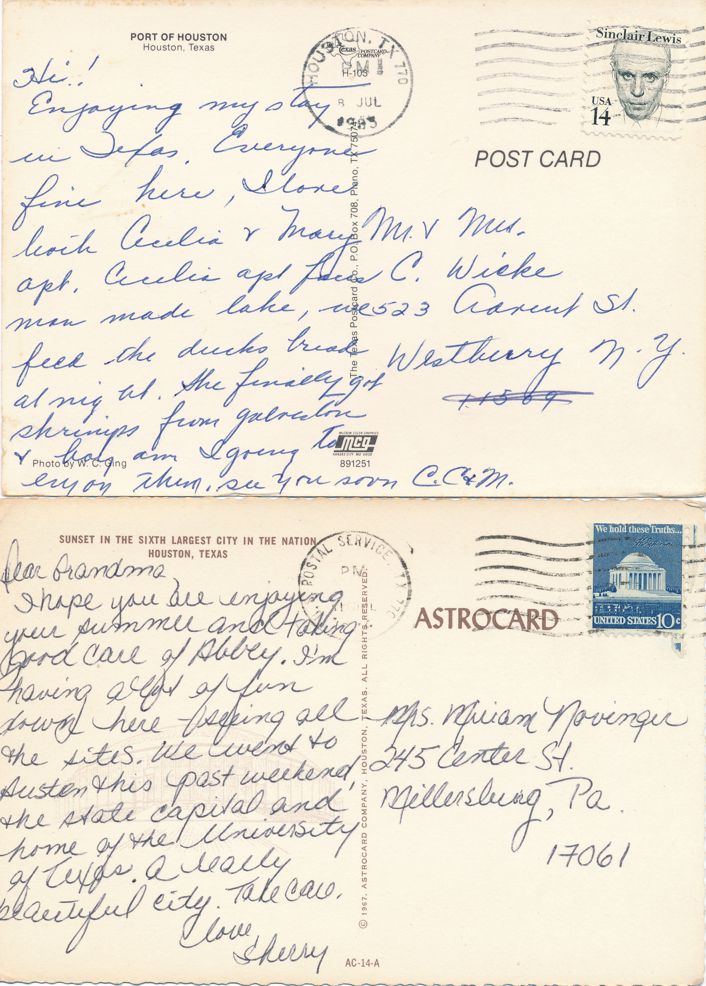 PORT OF HOUSTON
Houston, Texas
TEXAS POSTCARD
COMPANY
H-103
HOUSTON, TX 770
PM
8 JUL
1985
Sinclair Lewis
USA
14
POST CARD
Hi!!
Enjoying my stay
in Texas. Everyone
fine here, I love
both Cecilia & Mary
apt. Cecilia apt faces
man made lake, we
feed the ducks bread
at night. She finally got
shrimps from galveston
& boy am I going to
enjoy them. see you soon C.C.&M.
Mr. & Mrs.
C. Wicke
523 Advent St.
Westberry N.Y.
11569
The Texas Postcard Co., P.O. Box 708, Plano, TX 75074
Photo by W. C. Ging
MCG
891251
SUNSET IN THE SIXTH LARGEST CITY IN THE NATION
HOUSTON, TEXAS
POSTAL SERVICE TX 770
PM
We hold these Truths...
UNITED STATES 10c
ASTROCARD
Dear Grandma,
I hope you are enjoying
your summer and taking
good care of Abbey. I'm
having a lot of fun
down here - seeing all
the sites. We went to
Austen this past weekend
the state capital and
home of the University
of Texas. A really
beautiful city. Take care.
Love,
Sherry
Mrs. Miriam Novinger
245 Center St.
Millersburg, Pa.
17061
© 1967, ASTROCARD COMPANY, HOUSTON, TEXAS. ALL RIGHTS RESERVED.
AC-14-A